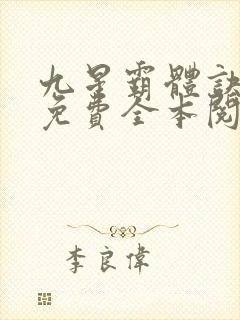 九星霸體訣
免費全本閱
李良偉